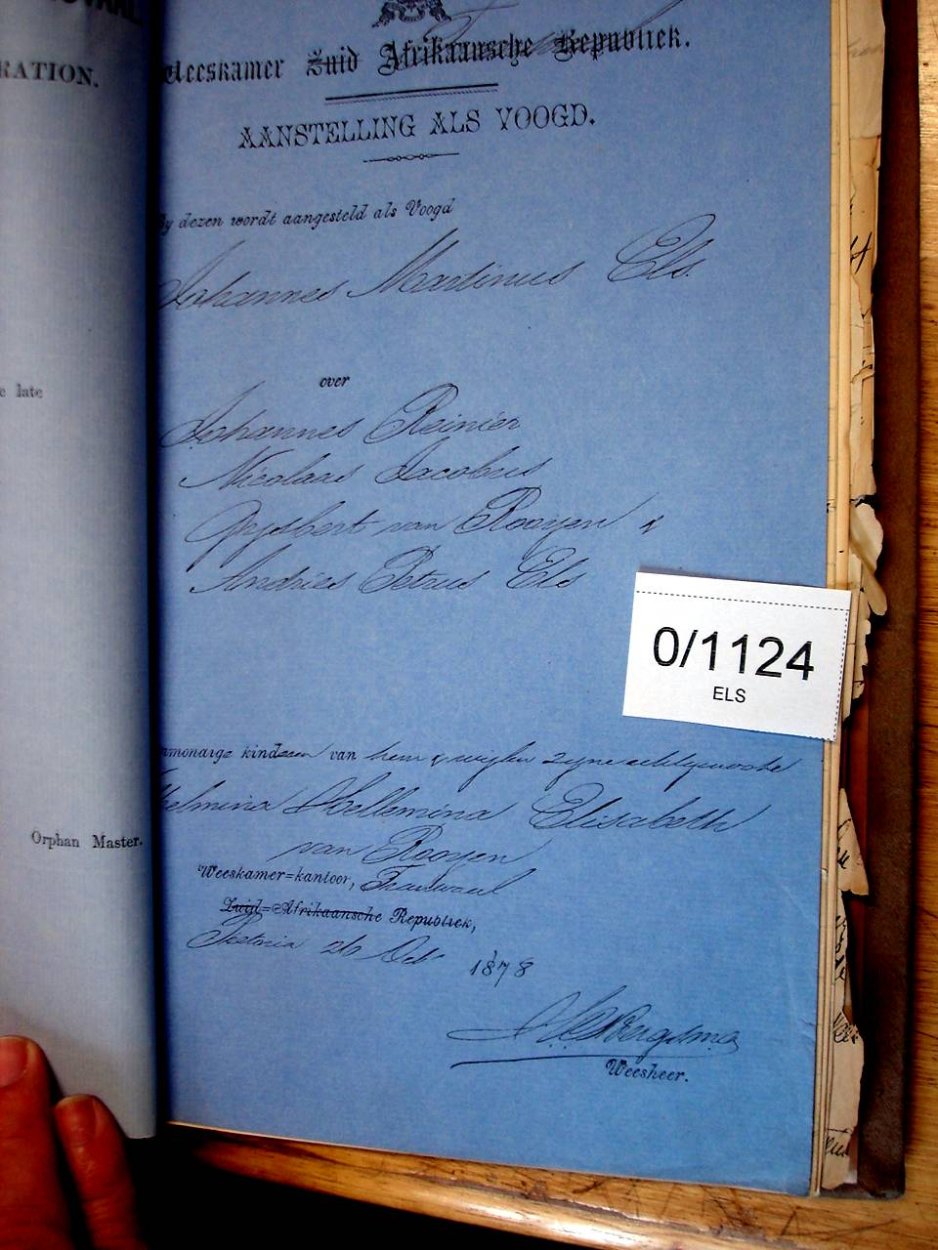 RATION.
e late
Orphan Master.
Weeskamer Zuid Afrikaansche Republiek.
AANSTELLING ALS VOOGD.
By dezen wordt aangesteld als Voogd
Johannes Martinus Els.
over
Johannes Reinier
Nicolaas Jacobus
Gysbert van Rooyen &
Andries Petrus Els
0/1124
ELS
kinderen van hem & wylen zyne
Hellemina Elisabeth
van Rooyen
Weeskamer=kantoor, Transvaal
Zuid=Afrikaansche Republiek,
Pretoria 26 Oct 1878
Weesheer.